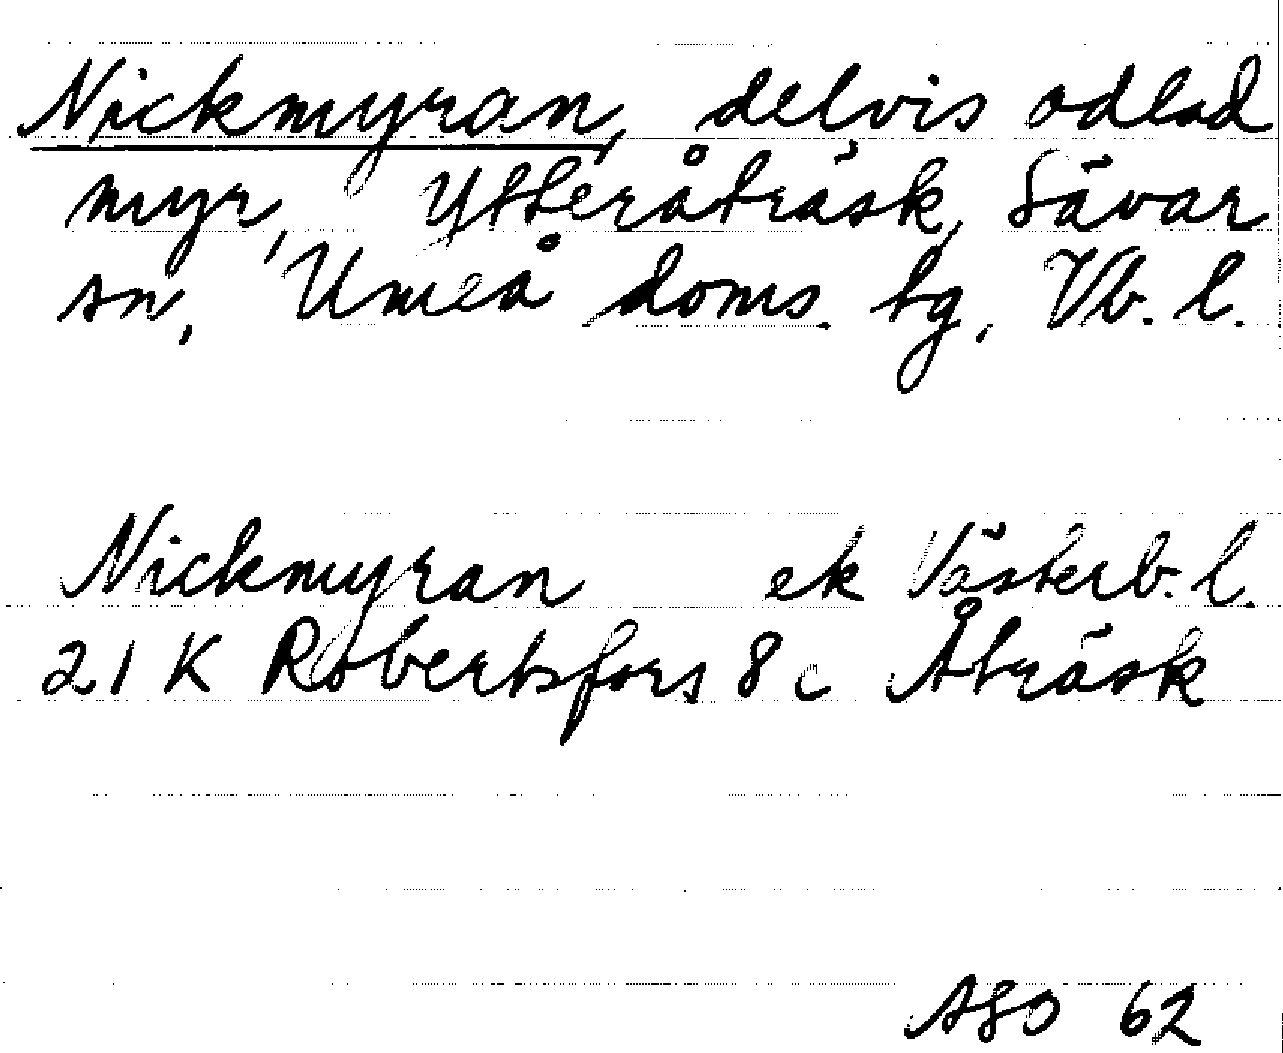 Nickmyran, delvis odlad
myr, Ytteråträsk, Sävar
sn, Umeå doms. tg, Vb. l.
Nickmyran ek Västerb. l.
21 K Robertsfors 8 c Åträsk
62